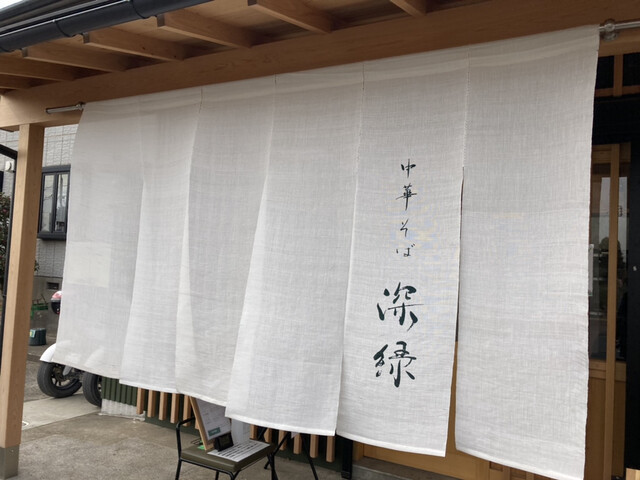 中華そば
深緑